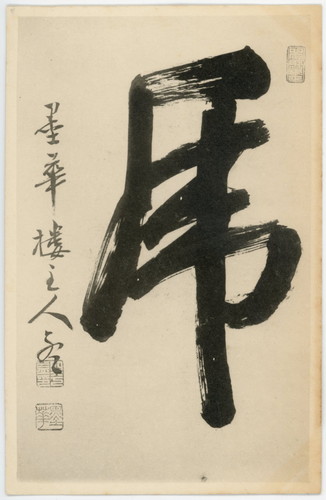 虎
墨華樓主人